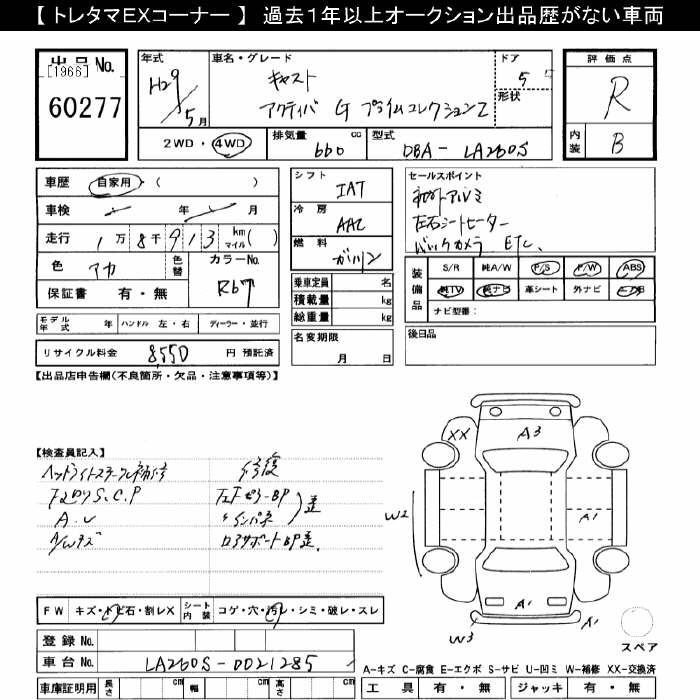 【 トレタマEXコーナー 】 過去１年以上オークション出品歴がない車両
出品 No.
【1966】
60277
年式
H29/5月
車名・グレード
キャスト
アクティバ G プライムコレクション
ドア
5
形状
評価点
R
内装
B
2WD・4WD
排気量 cc
660
型式
DBA- LA260S
車歴 自家用・( )
車検 年 月
走行 1万8千913 km マイル( )
色 アカ 色替
カラーNo.
R67
保証書 有・無
シフト
IAT
冷房
AAC
燃料
ガソリン
乗車定員 名
積載量 kg
総重量 kg
名変期限
月 日
セールスポイント
左右シートヒーター
バックカメラ ETC、
装備品
S/R 純A/W P/S P/W ABS
純TV 純ナビ 革シート 外ナビ エアB
ナビ型番：
後日品
モデル年式 年 ハンドル 左・右 ディーラー・並行
リサイクル料金 8,550 円 預託済
【出品店申告欄(不良箇所・欠品・注意事項等)】
【検査員記入】
修復
S.C.P
A.U
A/Wキズ
FW キズ・トビ石・割レX シート内装 コゲ・穴・汚レ・シミ・破レ・スレ
登録 No.
車台 No. LA260S-0021285
車庫証明用 長さ cm 幅 cm 高さ cm
XX
A3
W2
A1
A1
A1
W3
スペア
A−キズ C−腐食 E−エクボ S−サビ U−凹ミ W−補修 XX−交換済
工具 有・無 ジャッキ 有・無